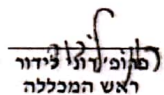 פרופ' רוני לידור
ראש המכללה